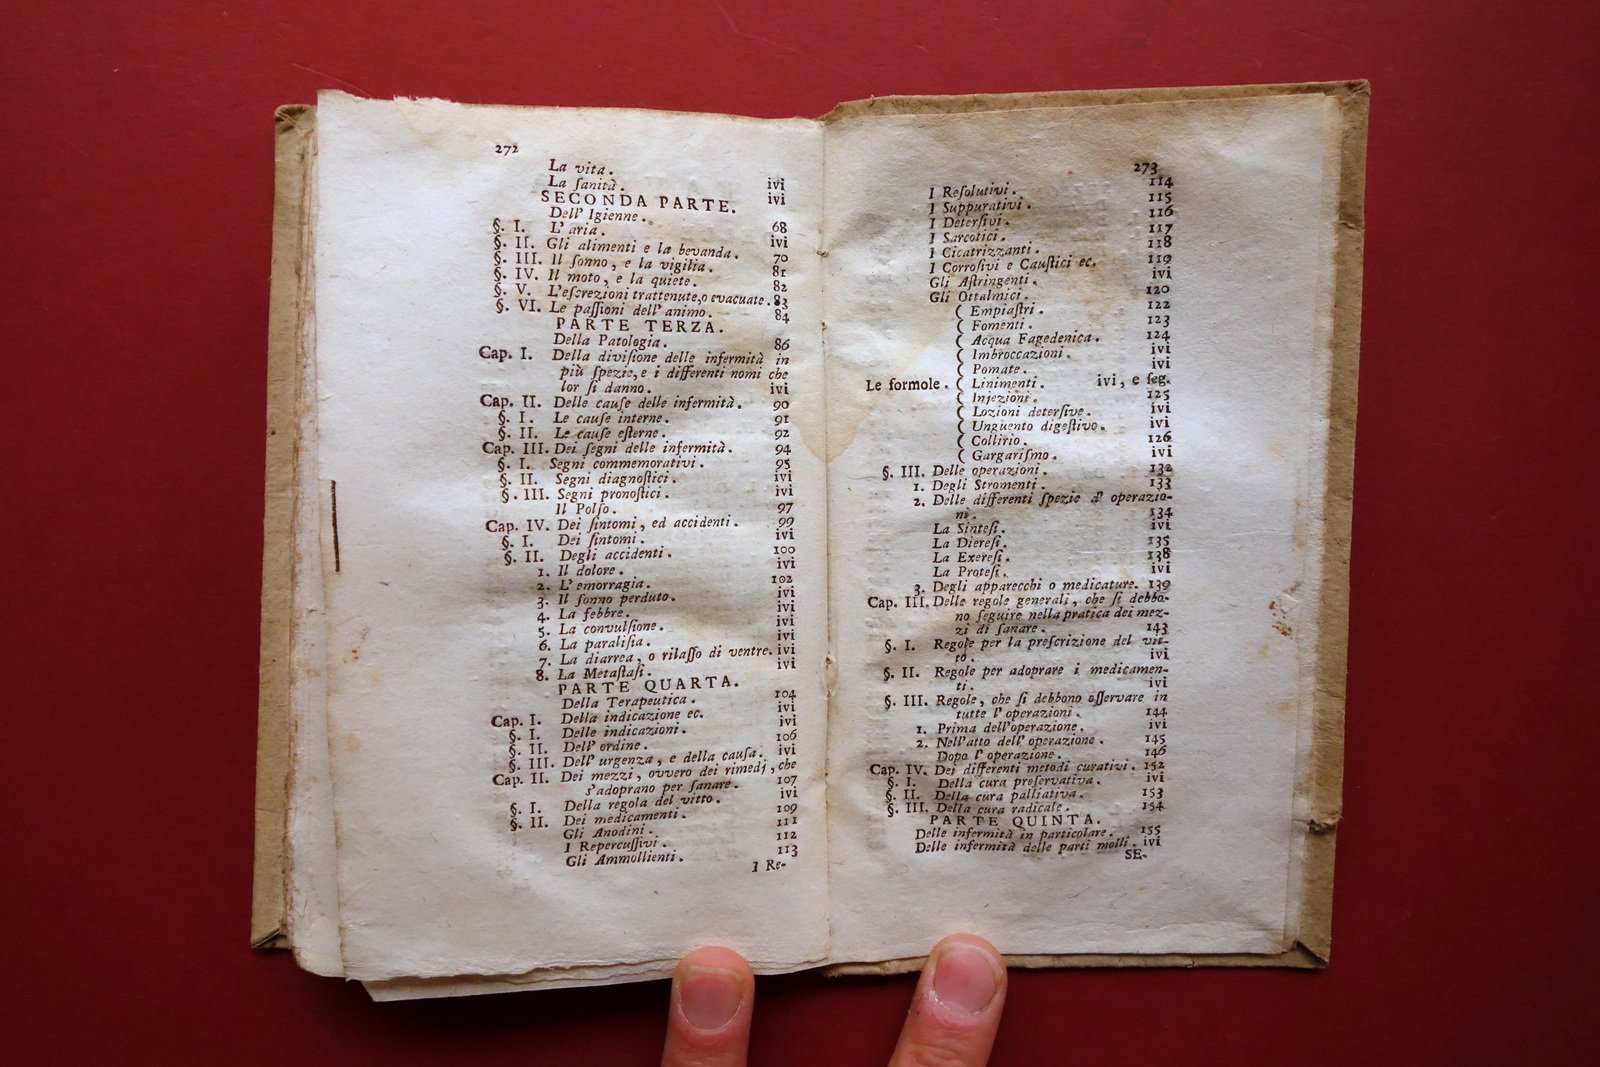 272
La vita. ivi
La ſanità. ivi
SECONDA PARTE.
Dell' Igienne. 68
§. I. L' aria. ivi
§. II. Gli alimenti e la bevanda. 70
§. III. Il ſonno, e la vigilia. 81
§. IV. Il moto, e la quiete. 82
§. V. L'eſcrezioni trattenute, o evacuate. 83
§. VI. Le paſſioni dell' animo. 84
PARTE TERZA.
Della Patologia. 86
Cap. I. Della diviſione delle infermità in
più ſpezie, e i differenti nomi che
lor ſi danno. ivi
Cap. II. Delle cauſe delle infermità. 90
§. I. Le cauſe interne. 91
§. II. Le cauſe eſterne. 92
Cap. III. Dei ſegni delle infermità. 94
§. I. Segni commemorativi. 95
§. II. Segni diagnoſtici. ivi
§. III. Segni pronoſtici. ivi
Il Polſo. 97
Cap. IV. Dei ſintomi, ed accidenti. 99
§. I. Dei ſintomi. ivi
§. II. Degli accidenti. 100
1. Il dolore. ivi
2. L' emorragia. 102
3. Il ſonno perduto. ivi
4. La febbre. ivi
5. La convulſione. ivi
6. La paraliſia. ivi
7. La diarrea, o rilaſſo di ventre. ivi
8. La Metaſtaſi. ivi
PARTE QUARTA.
Della Terapeutica. 104
Cap. I. Della indicazione ec. ivi
§. I. Delle indicazioni. ivi
§. II. Dell' ordine. 106
§. III. Dell' urgenza, e della cauſa. ivi
Cap. II. Dei mezzi, ovvero dei rimedj, che
s'adoprano per ſanare. 107
§. I. Della regola del vitto. ivi
§. II. Dei medicamenti. 109
Gli Anodini. 111
I Repercuſſivi. 112
Gli Ammollienti. 113
I Re-
273
I Reſolutivi. 114
I Suppurativi. 115
I Deterſivi. 116
I Sarcotici. 117
I Cicatrizzanti. 118
I Corroſivi e Cauſtici ec. 119
Gli Aſtringenti. ivi
Gli Ottalmici. 120
( Empiaſtri. 122
( Fomenti. 123
( Acqua Fagedenica. 124
( Imbroccazioni. ivi
( Pomate. ivi
Le formole. ( Linimenti. ivi, e ſeg.
( Injezioni. 125
( Lozioni deterſive. ivi
( Unguento digeſtivo. ivi
( Collirio. 126
( Gargariſmo. ivi
§. III. Delle operazioni. 132
1. Degli Stromenti. 133
2. Delle differenti ſpezie d' operazio-
ni. 134
La Sinteſi. ivi
La Diereſi. 135
La Exereſi. 138
La Proteſi. ivi
3. Degli apparecchi o medicature. 139
Cap. III. Delle regole generali, che ſi debbo-
no ſeguire nella pratica dei mez-
zi di ſanare. 143
§. I. Regole per la preſcrizione del vit-
to. ivi
§. II. Regole per adoprare i medicamen-
ti. ivi
§. III. Regole, che ſi debbono oſſervare in
tutte l' operazioni. 144
1. Prima dell'operazione. ivi
2. Nell'atto dell' operazione. 145
Dopo l' operazione. 146
Cap. IV. Dei differenti metodi curativi. 152
§. I. Della cura preſervativa. ivi
§. II. Della cura palliativa. 153
§. III. Della cura radicale. 154
PARTE QUINTA.
Delle infermità in particolare. 155
Delle infermità delle parti molli. ivi
SE-